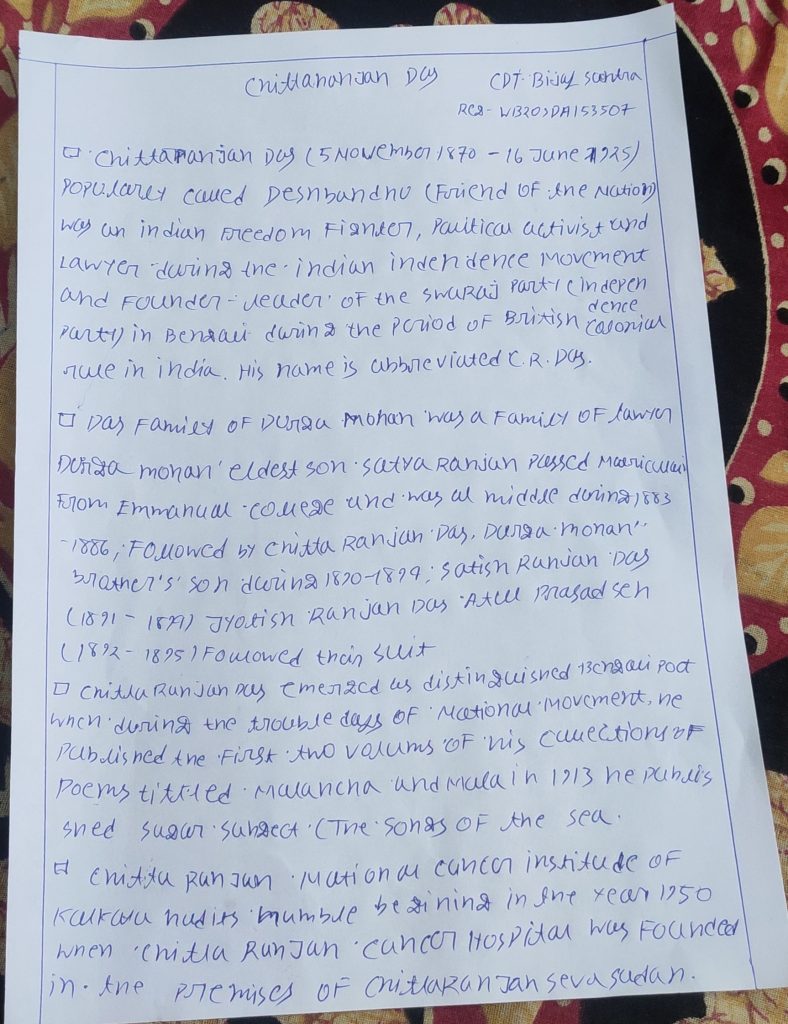 Chittaranjan Das CDT. Bijay Santra
WB20SDA153507
Chittaranjan Das (5 November 1870 - 16 June 1925)
Popularly called Deshbandhu (Friend of the Nation)
was an indian Freedom Fighter, Political activist and
Lawyer during the indian indendence movement
and Founder-leader of the Swaraj Party (indepen
dence
Party) in Bengali during the period of British Colonial
rule in india. His name is abbreviated C.R. Das.
Das Family of Durga Mohan was a Family of lawyer
Durga mohan' eldest son satya Ranjan passed
From Emmanual college and was at middle during 1883
-1886, Followed by Chitta Ranjan Das. Durga mohan''
Brother's' son during 1890-1894; Satish Ranjan Das
(1891 - 1894) Jyotish Ranjan Das Atul Prasad sen
(1892 - 1895) Followed their suit
Chitta Ranjan Das emerged as distinguished Bengali Poet
when during the trouble days of National movement, he
Published the First two volums of his collections of
Poems tittled Malancha and Mala in 1913 he Publis
shed sagar sangeet (The songs of the sea.
Chitta Ranjan National cancer institute of
Kolkata had its humble begining in the year 1950
when Chitta Ranjan cancer Hospital was Founded
in the premises of ChittaRanjan seva sadan.